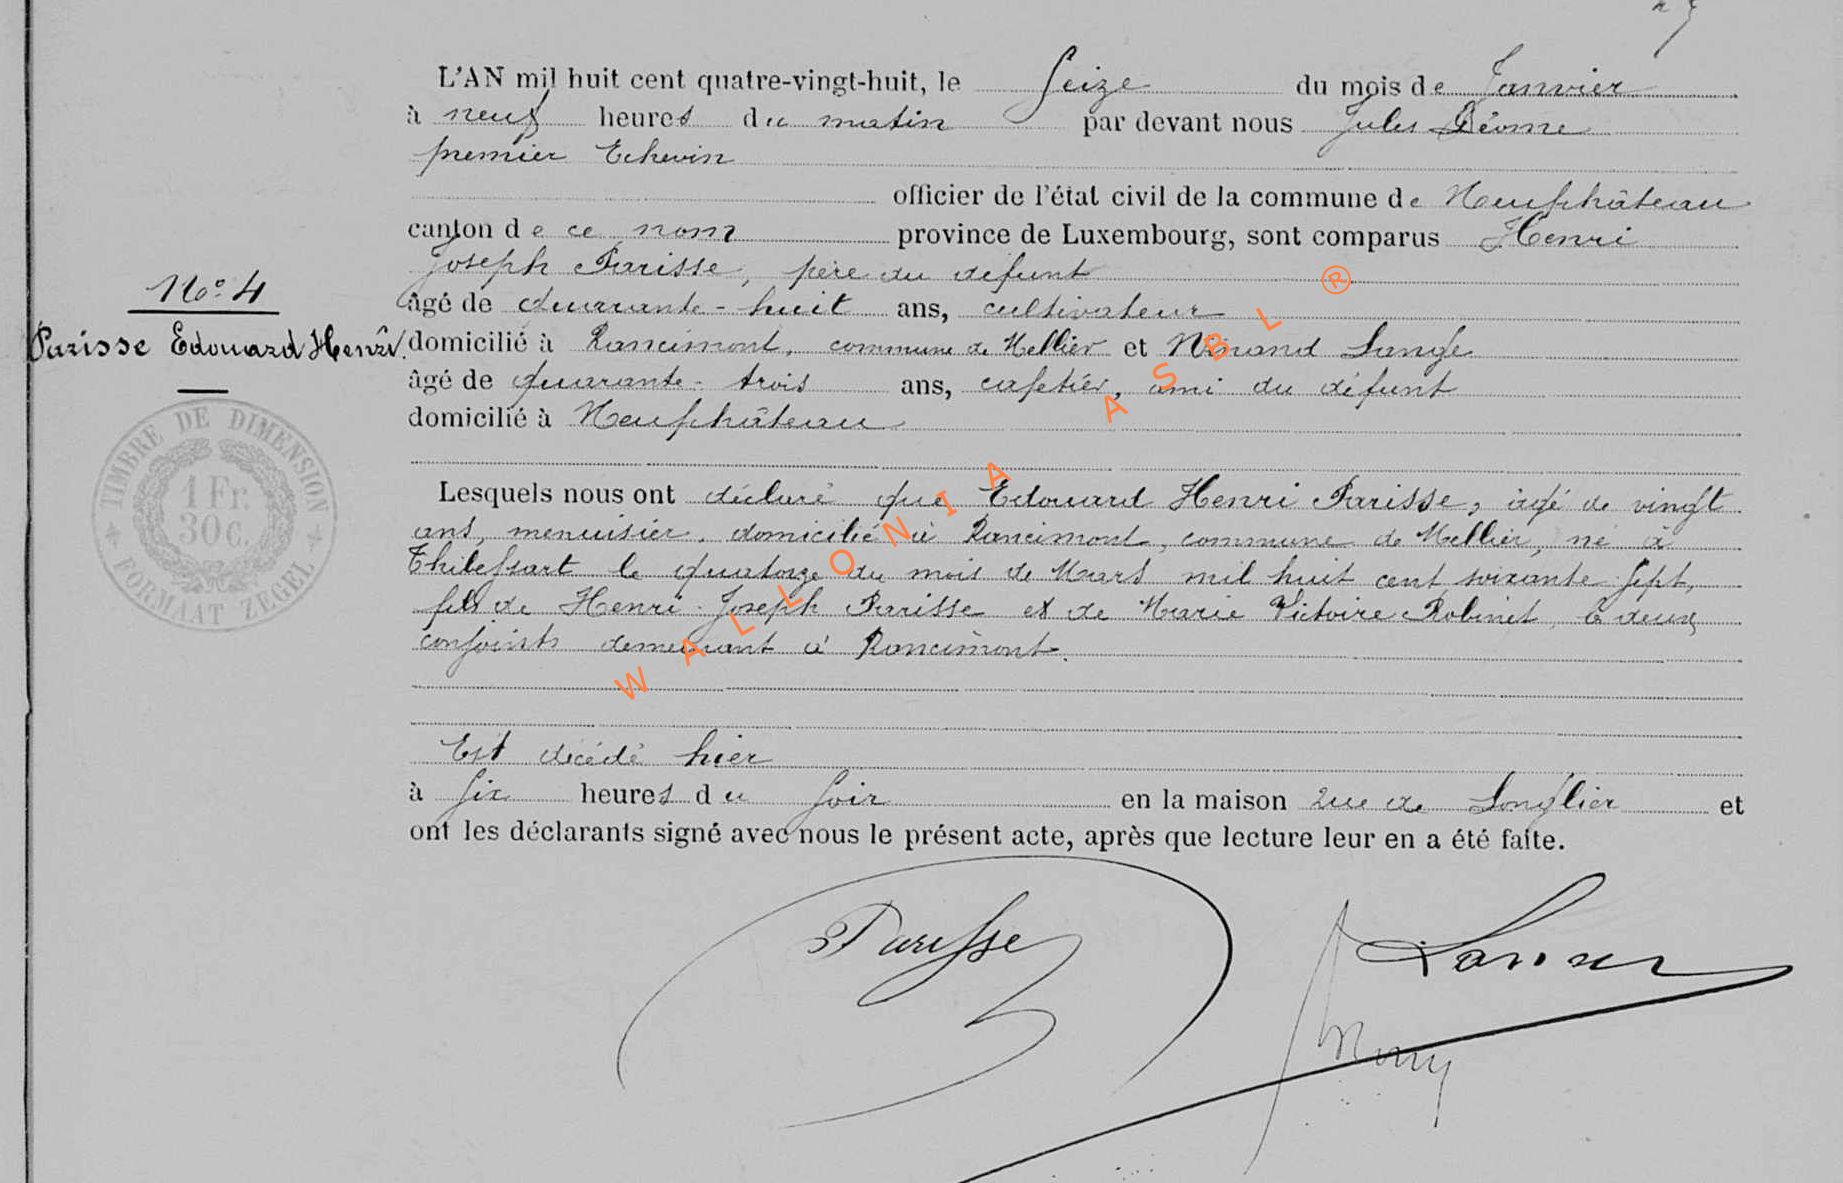 L'AN mil huit cent quatre-vingt-huit, le Seize du mois de Janvier
à neuf heures du matin par devant nous Jules Déome
premier Echevin
officier de l'état civil de la commune de Neufchâteau
canton de ce nom province de Luxembourg, sont comparus Henri
Joseph Parisse, père du défunt
No. 4
âgé de quarante-huit ans, cultivateur
Parisse Edouard Henri.
domicilié à Rancimont, commune de Mellier et Ninand Lange
âgé de quarante-trois ans, cafetier, ami du défunt
domicilié à Neufchâteau
TIMBRE DE DIMENSION
1 Fr.
30 c.
FORMAAT ZEGEL
Lesquels nous ont déclaré que Edouard Henri Parisse, âgé de vingt
ans, menuisier, domicilié à Rancimont, commune de Mellier, né à
Thibessart le quatorze du mois de Mars mil huit cent soixante sept,
fils de Henri-Joseph Parisse et de Marie Victoire Robinet, les deux
conjoints demeurant à Rancimont.
Est décédé hier
à six heures du soir en la maison rue de Longlier et
ont les déclarants signé avec nous le présent acte, après que lecture leur en a été faite.
Parisse
WALLONIA ASBL ®